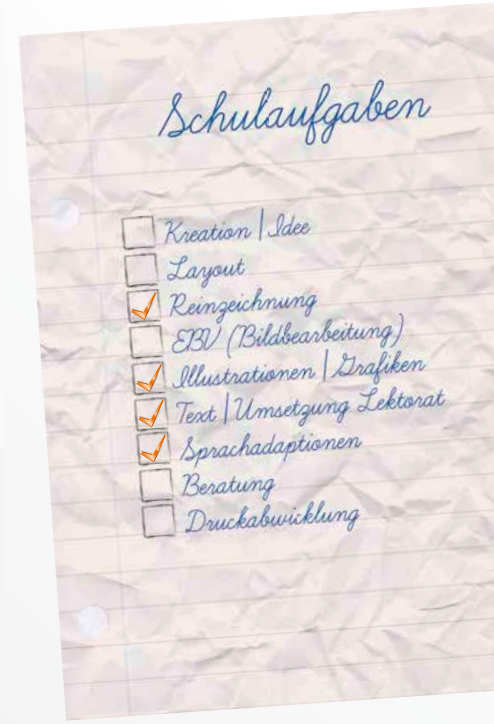 Schulaufgaben
Kreation | Idee
Layout
Reinzeichnung
EBV (Bildbearbeitung)
Illustrationen | Grafiken
Text | Umsetzung Lektorat
Sprachadaptionen
Beratung
Druckabwicklung